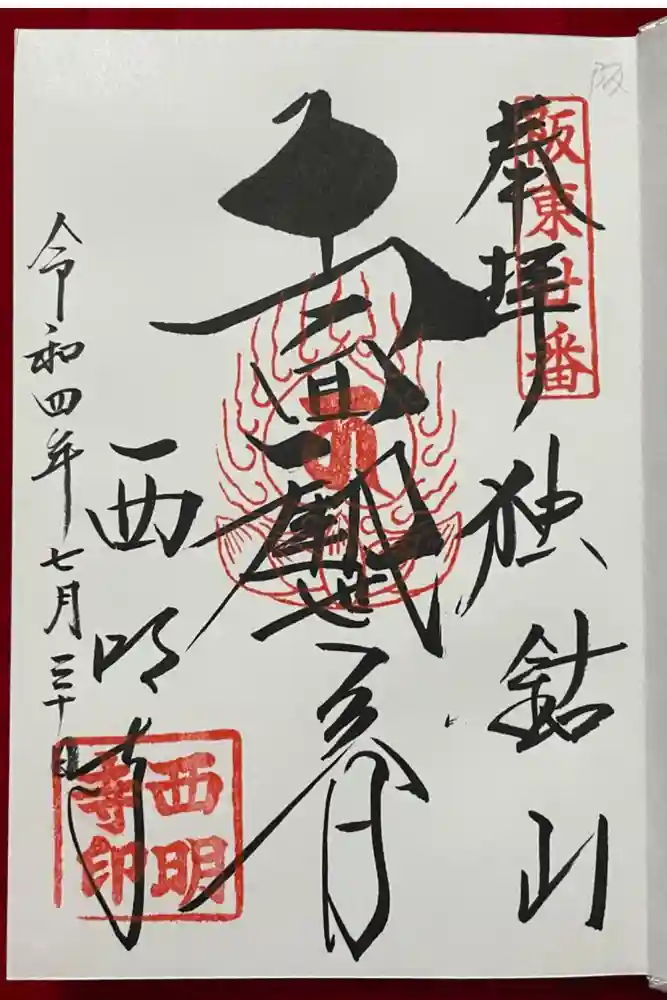 阪
阪東廿番
奉拝
独鈷山
西明寺
西明寺印
令和四年七月三十日